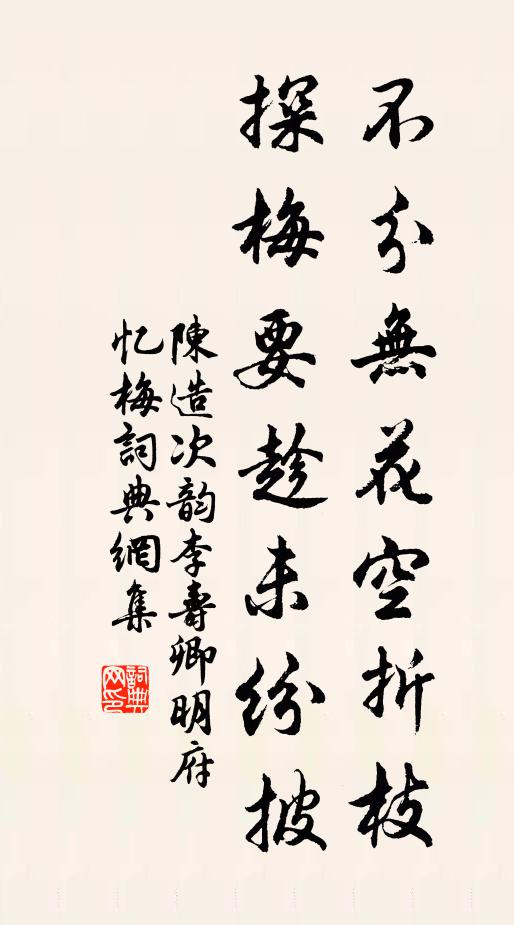 不分無花空折枝
探梅要趁未紛披
陳造次韵李壽卿明府
忆梅詞典網集
詞典网印